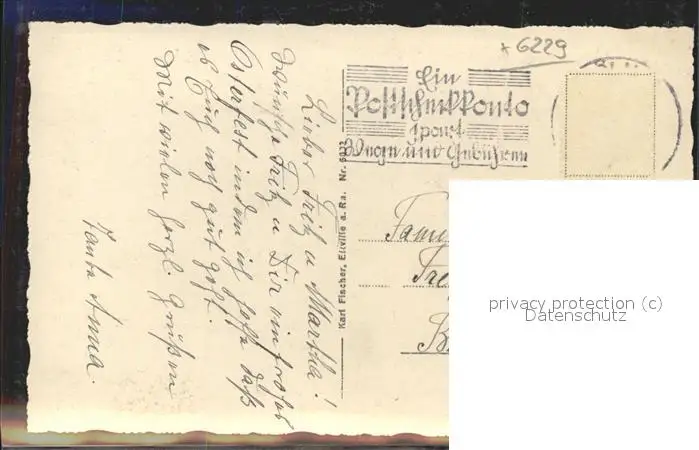 Lieber Fritz u Martha!
Wünsche Fritz u Dir ein frohes
Osterfest indem ich hoffe daß
es Euch noch gut geht.
Mit vielen herzl Grüßen
Tante Anna.
Karl Fischer, Eltville a. Ra. Nr.
* 6229
Ein
Postscheckkonto
spart
Wege und Gebühren
Fam
Fre
B
privacy protection (c)
Datenschutz